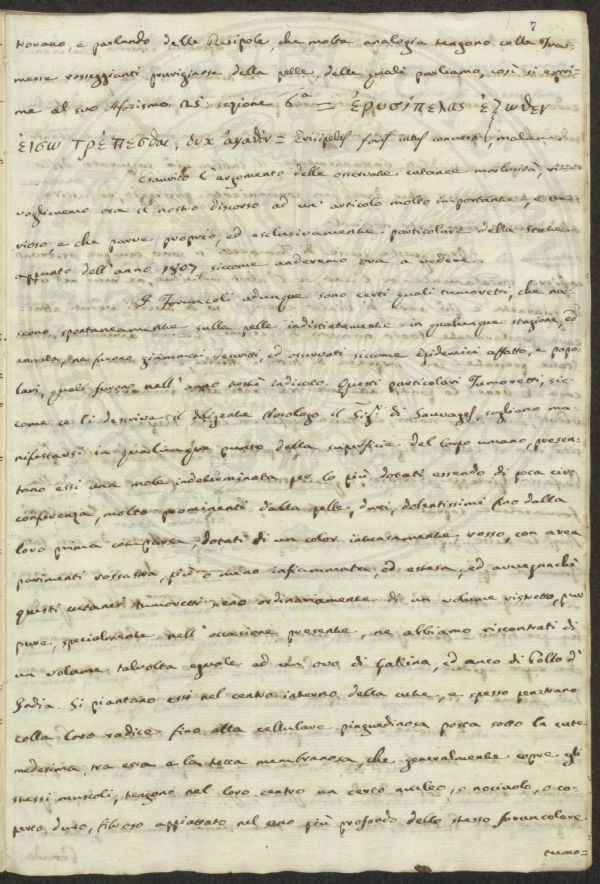 7
novano, e parlando delle Risipole, che molta analogia tengono colle
messe rosseggianti pruriginose della pelle, delle quali parliamo, così si espri-
me al suo Aforismo 25: sezione 6ª = ἐρυσίπελας ἔξωθεν
εἴσω τρέπεσθαι, οὐκ ἀγαθόν = Erisipelas foris intus converti malum.
Esaurito l'argomento delle osservate cutanee morbosità,
voglieremo ora il nostro discorso ad un' articolo molto importante, e cu-
rioso, e che parve proprio, ed esclusivamente particolare della state
appunto dell'anno 1807, siccome anderemo ora a vedere.
I Foruncoli adunque sono certi quali tumoretti, che na-
scono spontaneamente sulla pelle indistintamente in qualunque stagione, ed
annata, ne furono giammai descritti, ed osservati siccome epidemici affatto, e popo-
lari, quali furono nell'anno testè indicato. Questi particolari Tumoretti, sic-
come ce li descrive il diligente Nosologo il Sigr. di Sauvages, sogliono ma-
nifestarsi in qualunque punto della superficie del corpo umano, presen-
tano essi una mole indeterminata per lo più dotati essendo di poca cir-
conferenza, molto prominenti dalla pelle, duri, dolentissimi fino dalla
loro prima comparsa, dotati di un color intensamente rosso, con area
parimenti rossastra, più o meno infiammata, ed estesa, ed avvegnachè
questi cutanei tumoretti sieno ordinariamente di un volume ristretto, pur
pure, specialmente nell'occasione presente, ne abbiamo riscontrati di
un volume talvolta eguale ad un ovo di Gallina, ed anco di Pollo d'
India. Si piantano essi nel centro interno della cute, e spesso penetrano
colla loro radice fino alla cellulare pinguedinosa posta sotto la cute
medesima, tra essa e la tela membranosa, che generalmente copre gli
stessi muscoli, tengono nel loro centro un certo nucleo, o nocciolo, o co-
perto duro, fibroso appiattato nel seno più profondo dello stesso foruncolare
tumo=